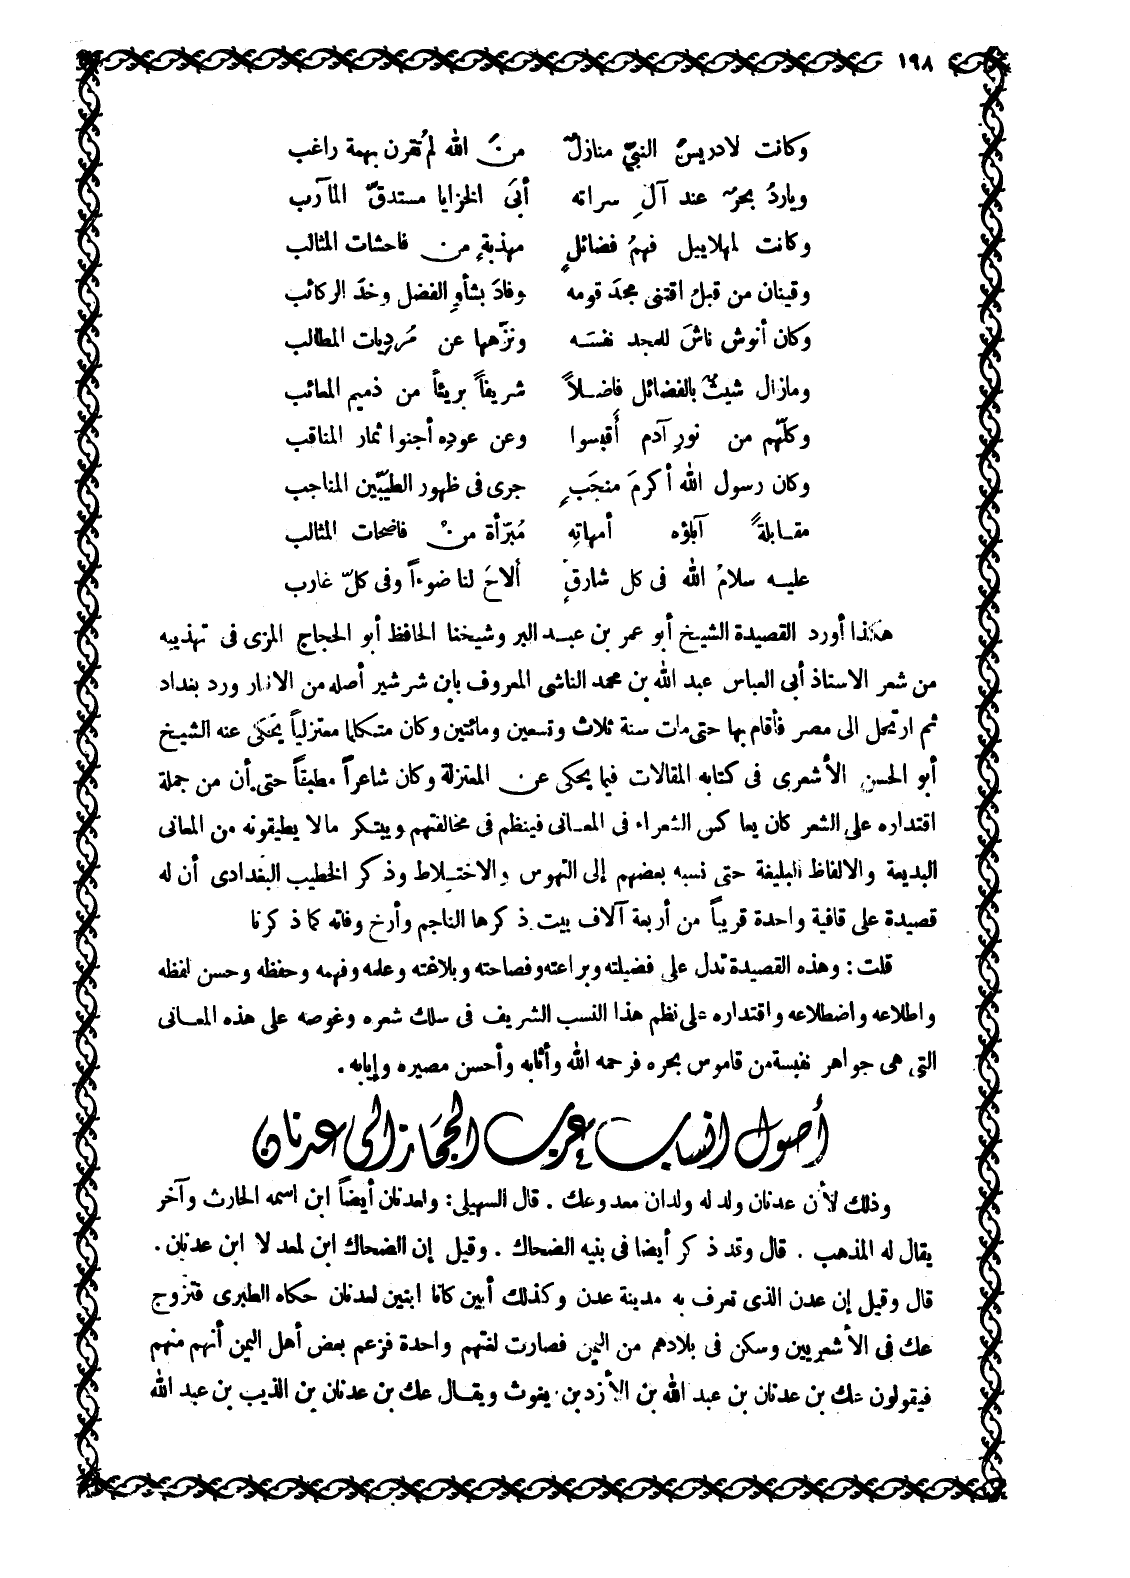 ١٩٨
وكانت لادريسَ النبيِّ منازلٌ    من الله لم تُقرن بهمة راغب
وياردُ بحرٌ عند آلِ سراته    أبىَ الخزايا مستدقّ المآرب
وكانت لمهلاييل فهمُ فضائلٍ    مهذبةٍ من فاحشات المثالب
وقينان من قبلُ اقتنى مجدَ قومه    وفادَ بشأوِ الفضل وخدَ الركائب
وكان أنوش ناشَ للمجد نفسَه    ونزّهها عن مُردِيات المطالب
ومازال شيثٌ بالفضائل فاضلاً    شريفاً بريئاً من ذميم المعائب
وكلّهم من نورِ آدم أُقبسوا    وعن عودِه أجنوا ثمار المناقب
وكان رسول الله أكرمَ منجَبٍ    جرى فى ظهور الطيّبين المناجب
مقابلةً آباؤه أمهاتِه    مُبرّأة من فاضحات المثالب
عليه سلامُ الله فى كل شارقٍ    ألاحَ لنا ضوءاً وفى كلّ غارب
هكذا أورد القصيدة الشيخ أبو عمر بن عبد البر وشيخنا الحافظ أبو الحجاج المزى فى تهذيبه
من شعر الاستاذ أبى العباس عبد الله بن محمد الناشى المعروف بابن شرشير أصله من الانبار ورد بغداد
ثم ارتحل الى مصر فأقام بها حتى مات سنة ثلاث وتسعين ومائتين وكان متكلما معتزلياً يحكى عنه الشيخ
أبو الحسن الأشعرى فى كتابه المقالات فيما يحكى عن المعتزلة وكان شاعراً مطبقاً حتى أن من جملة
اقتداره على الشعر كان يعاكس الشعراء فى المعانى فينظم فى مخالفتهم ويبتكر مالا يطيقونه من المعانى
البديعة والالفاظ البليغة حتى نسبه بعضهم إلى التهوس والاختلاط وذكر الخطيب البغدادى أن له
قصيدة على قافية واحدة قريباً من أربعة آلاف بيت ذكرها الناجم وأرخ وفاته كما ذكرنا
قلت : وهذه القصيدة تدل على فضيلته وبراعته وفصاحته وبلاغته وعلمه وفهمه وحفظه وحسن لفظه
واطلاعه واضطلاعه واقتداره على نظم هذا النسب الشريف فى سلك شعره وغوصه على هذه المعانى
التى هى جواهر نفيسة من قاموس بحره فرحمه الله وأثابه وأحسن مصيره وإيابه .
أصول انساب عرب الحجاز الى عدنان
وذلك لأن عدنان ولد له ولدان معد وعك . قال السهيلى : ولعدنان أيضاً ابن اسمه الحارث وآخر
يقال له المذهب . قال وقد ذكر أيضا فى بنيه الضحاك . وقيل إن الضحاك ابن لمعد لا ابن عدنان .
قال وقيل إن عدن الذى تعرف به مدينة عدن وكذلك أبين كانا ابنين لعدنان حكاه الطبرى فتزوج
عك فى الأشعريين وسكن فى بلادهم من اليمن فصارت لغتهم واحدة فزعم بعض أهل اليمن أنهم منهم
فيقولون عك بن عدنان بن عبد الله بن الأزد بن يغوث ويقال عك بن عدنان بن الذيب بن عبد الله